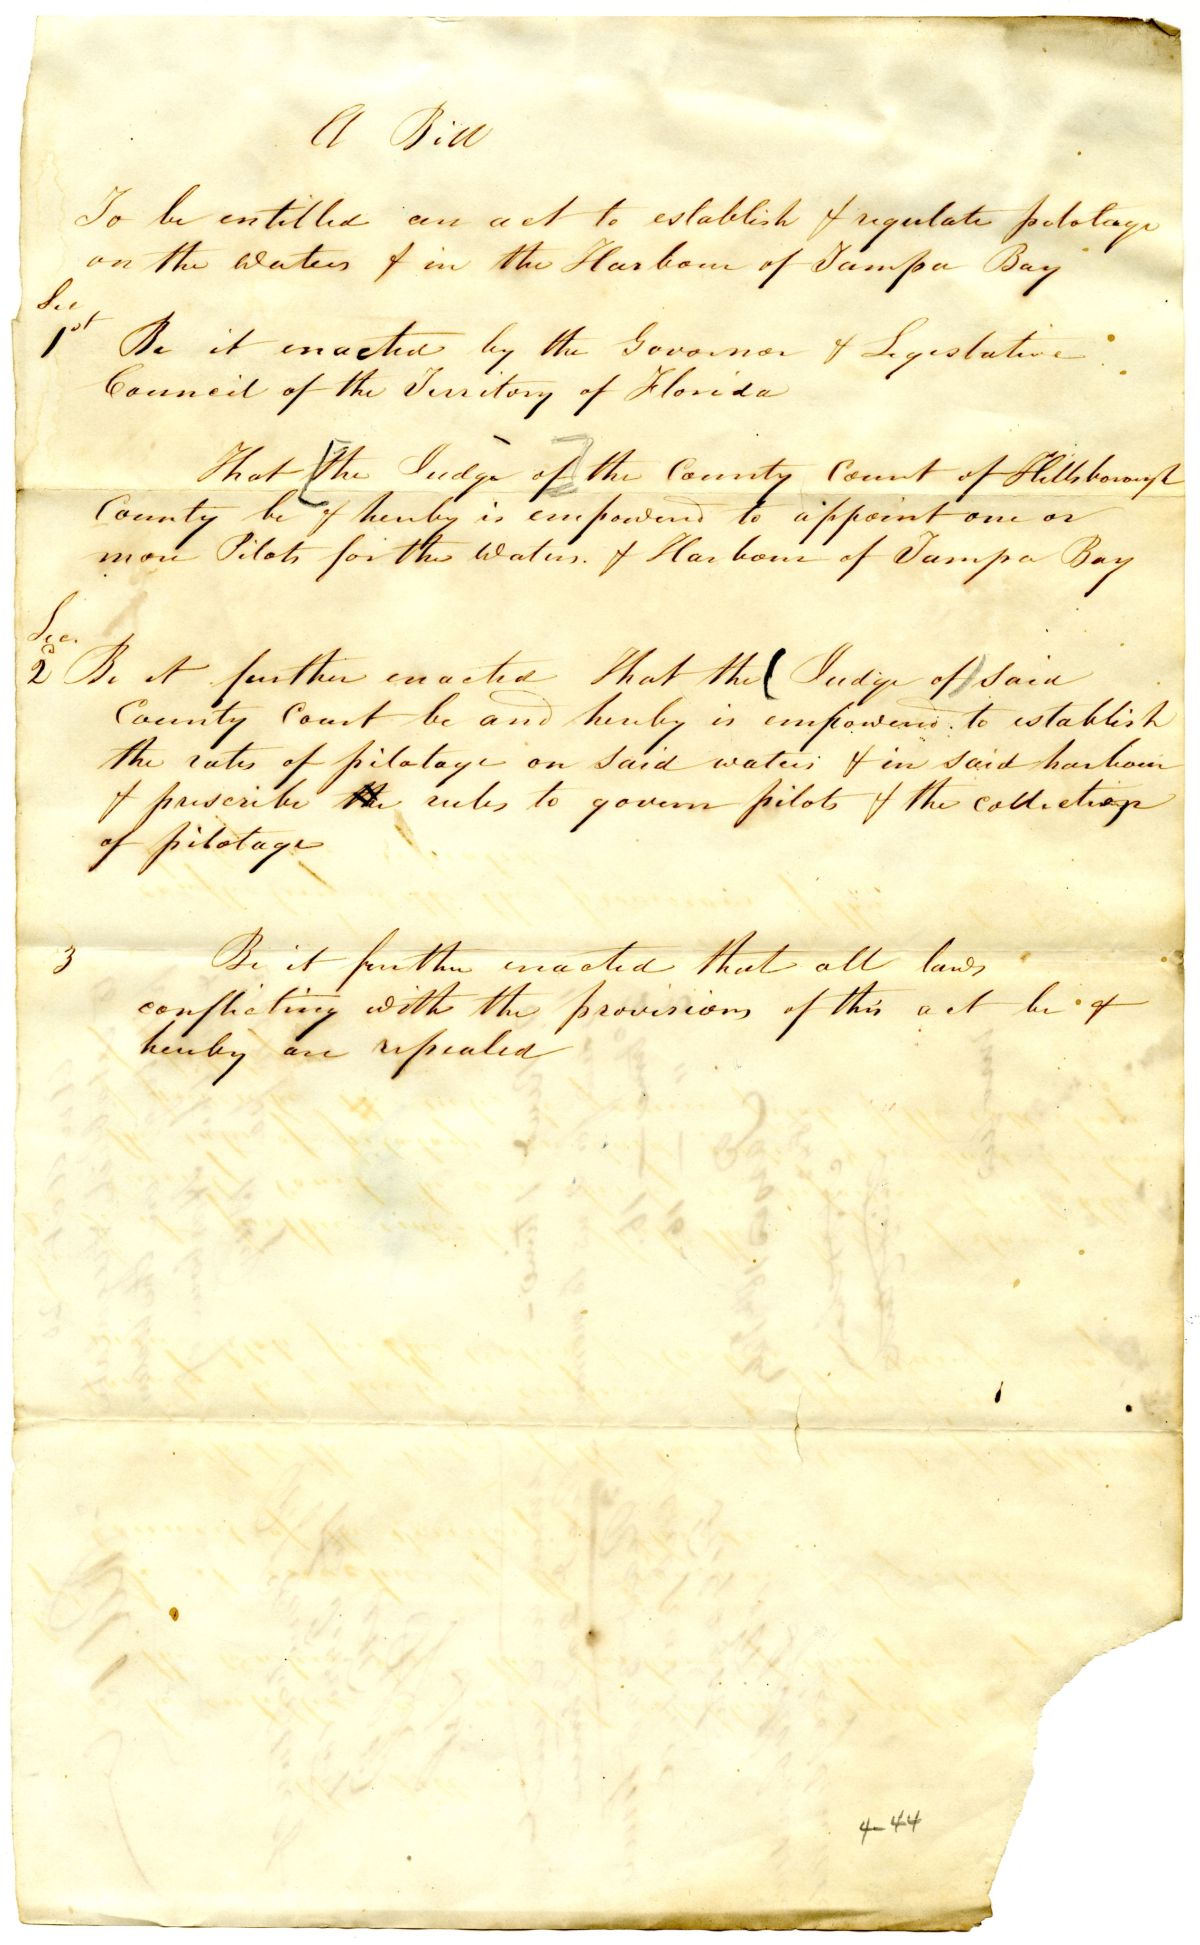 A Bill
To be entitled an act to establish & regulate pilotage
on the Waters & in the Harbour of Tampa Bay
Sec
1st Be it enacted by the Governor & Legislative
Council of the Territory of Florida
That [the Judge of] the County Court of Hillsborough
County be & hereby is empowered to appoint one or
more Pilots for the Waters. & Harbour of Tampa Bay
Sec.
2d Be it further enacted That the (Judge of) said
County Court be and hereby is empowered to establish
the rates of pilotage on said waters & in said harbour
& prescribe the rules to govern pilots & the collection
of pilotage
3 Be it further enacted that all laws
conflicting with the provisions of this act be &
hereby are repealed
4-44